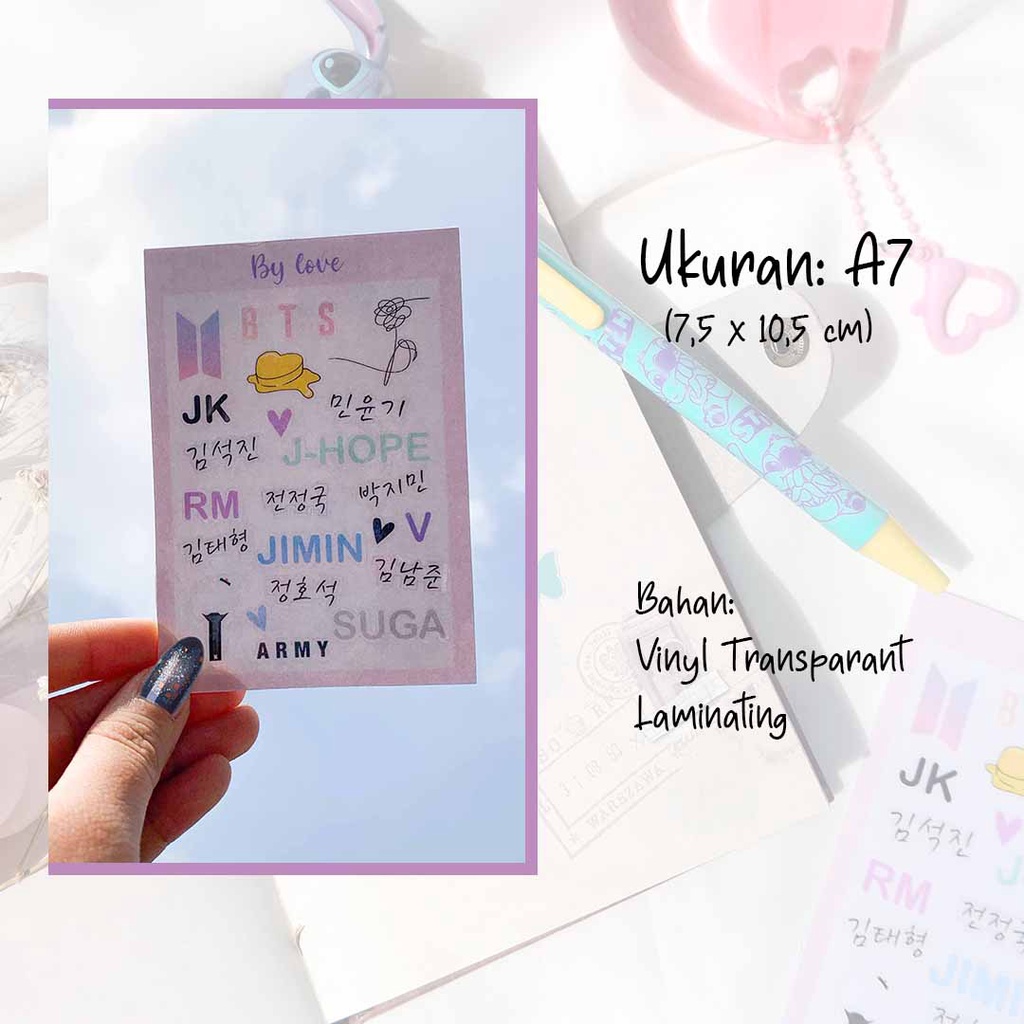 By love
BTS
JK
민윤기
김석진
J-HOPE
RM
전정국
박지민
김태형
JIMIN
V
정호석
김남준
SUGA
ARMY
Ukuran: A7
(7,5 x 10,5 cm)
Bahan:
Vinyl Transparant
Laminating
WARSZAWA
JK
김석진
RM
김태형